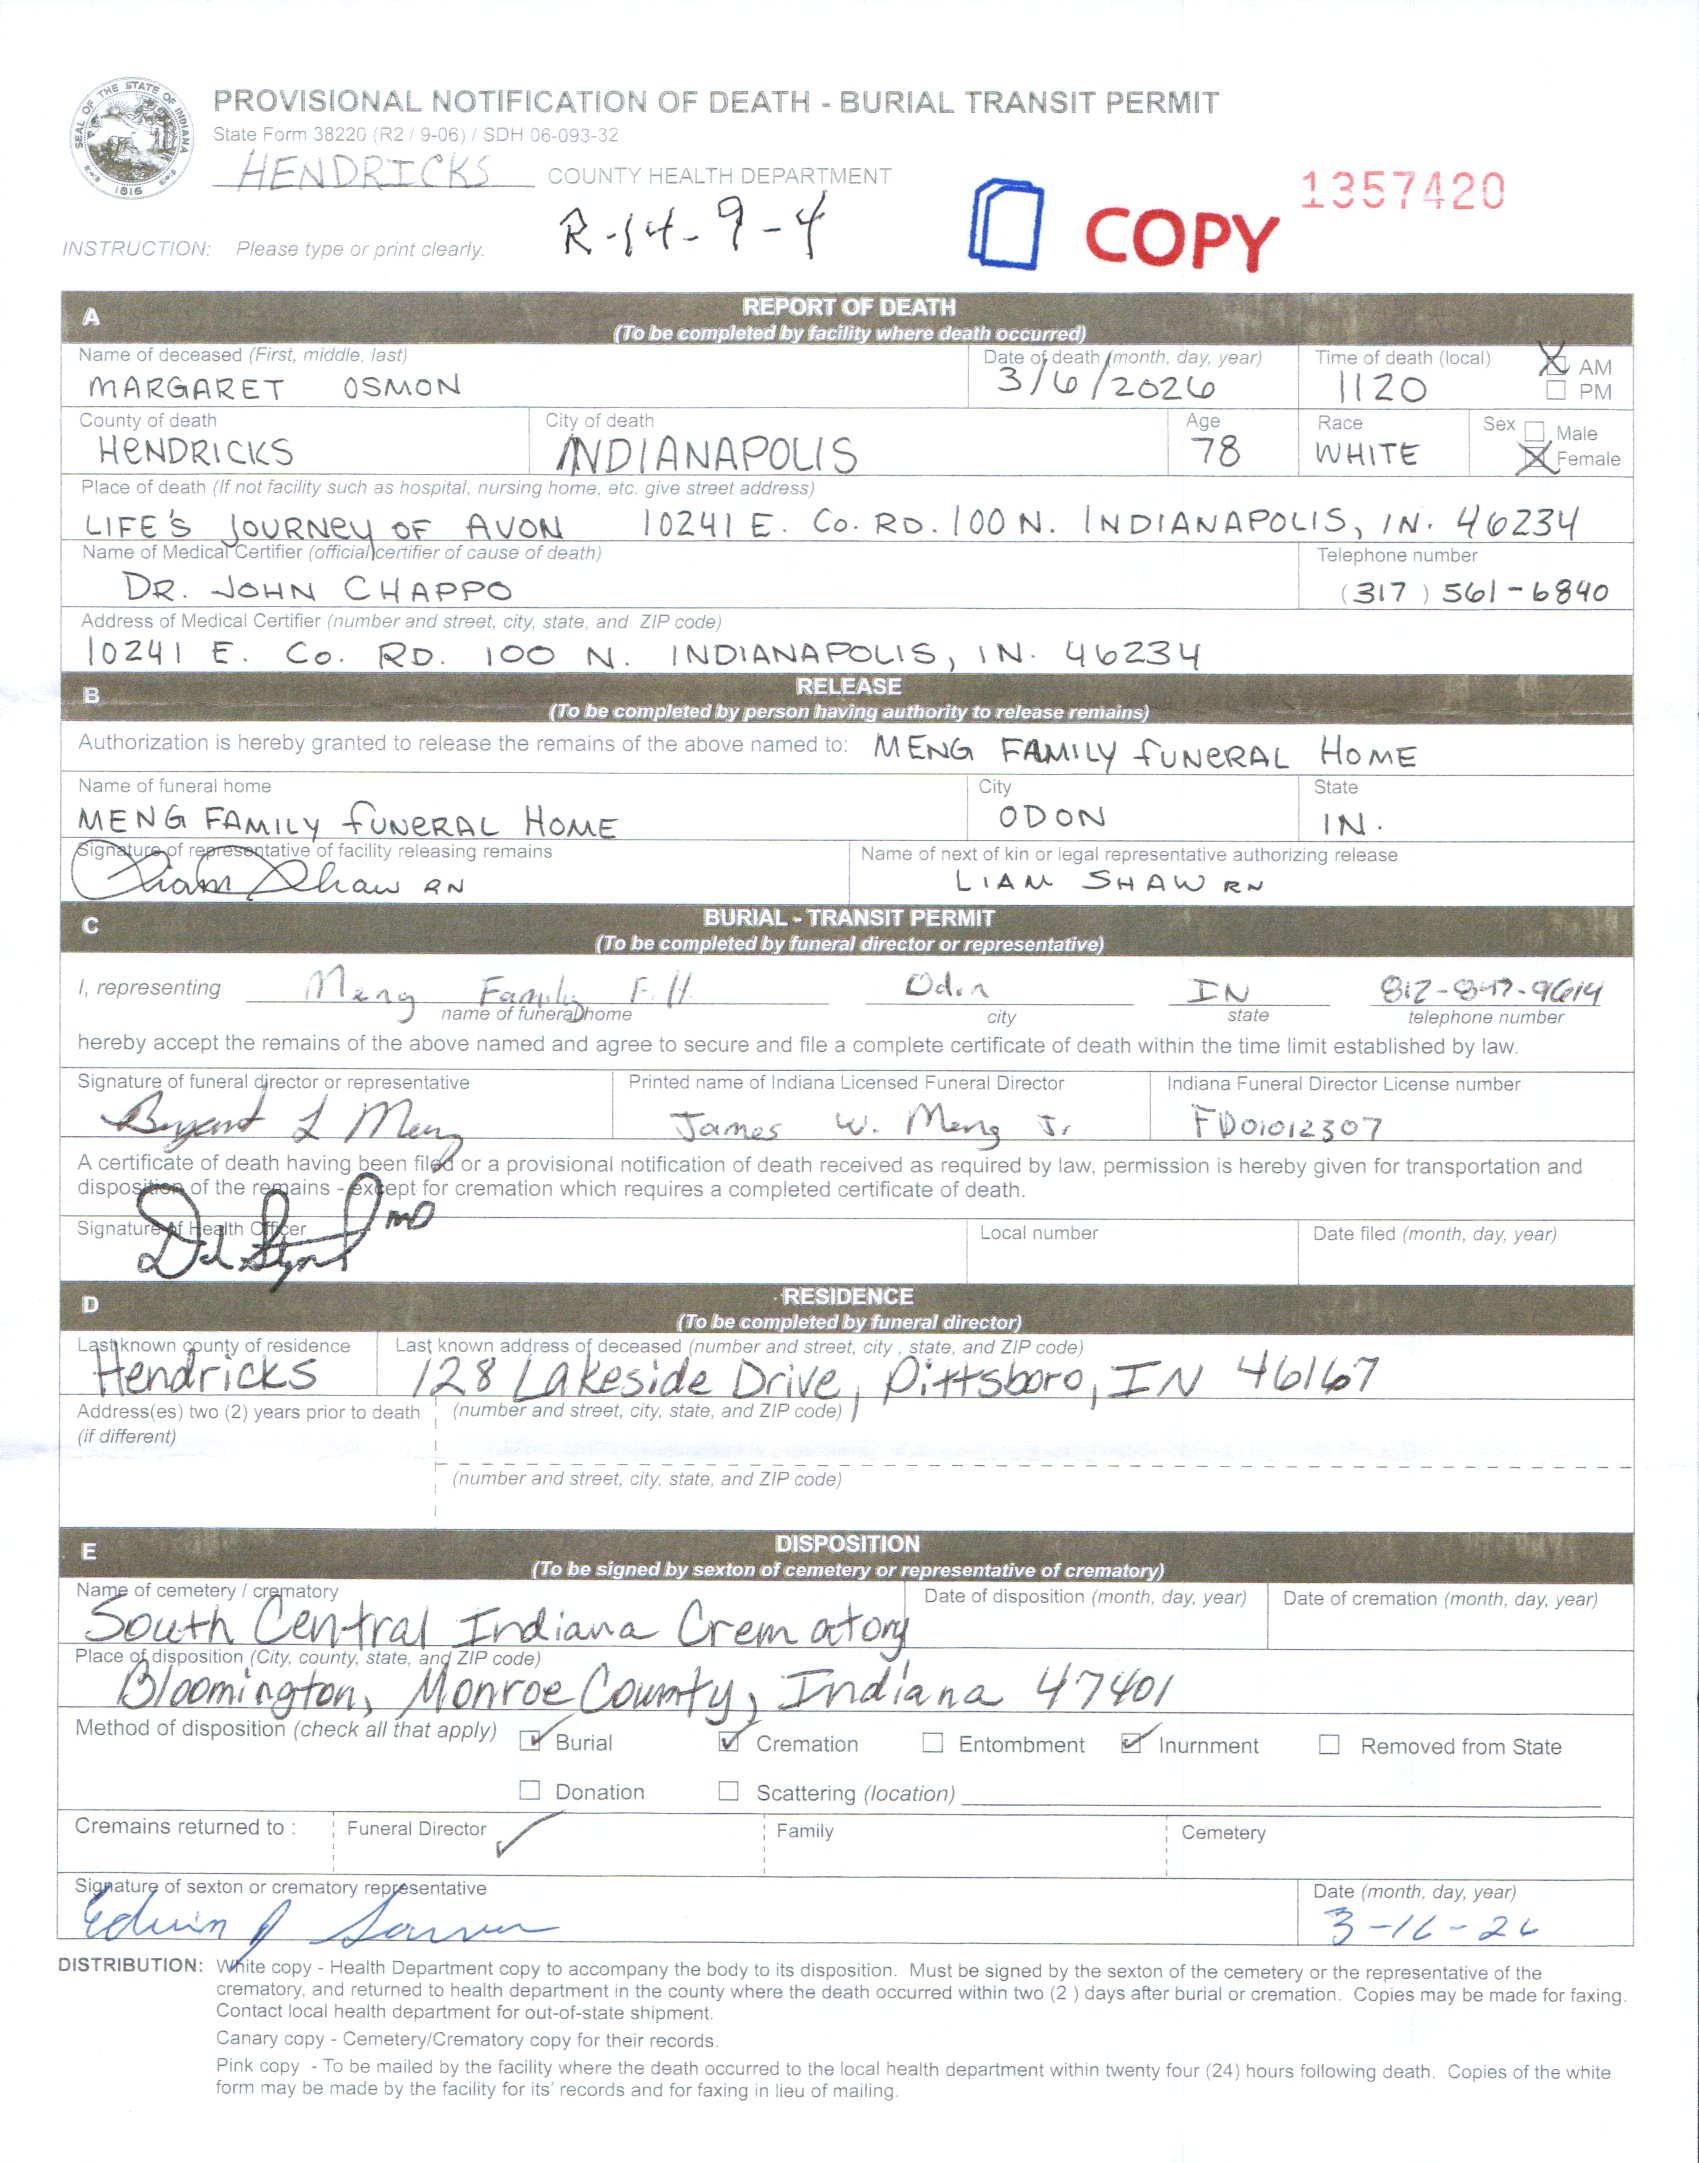 SEAL OF THE STATE OF INDIANA
1816
PROVISIONAL NOTIFICATION OF DEATH - BURIAL TRANSIT PERMIT
State Form 38220 (R2 / 9-06) / SDH 06-093-32
HENDRICKS COUNTY HEALTH DEPARTMENT
1357420
COPY
R-14-9-4
INSTRUCTION: Please type or print clearly.
A REPORT OF DEATH
(To be completed by facility where death occurred)
Name of deceased (First, middle, last) Date of death (month, day, year) Time of death (local) AM
MARGARET OSMON 3/6/2026 1120 PM
County of death City of death Age Race Sex Male
HENDRICKS INDIANAPOLIS 78 WHITE Female
Place of death (If not facility such as hospital, nursing home, etc. give street address)
LIFE'S JOURNEY OF AVON 10241 E. CO. RD. 100 N. INDIANAPOLIS, IN. 46234
Name of Medical Certifier (official certifier of cause of death) Telephone number
DR. JOHN CHAPPO (317) 561-6840
Address of Medical Certifier (number and street, city, state, and ZIP code)
10241 E. CO. RD. 100 N. INDIANAPOLIS, IN. 46234
B RELEASE
(To be completed by person having authority to release remains)
Authorization is hereby granted to release the remains of the above named to: MENG FAMILY FUNERAL HOME
Name of funeral home City State
MENG FAMILY FUNERAL HOME ODON IN.
Signature of representative of facility releasing remains Name of next of kin or legal representative authorizing release
Liam Shaw RN LIAM SHAW RN
C BURIAL - TRANSIT PERMIT
(To be completed by funeral director or representative)
I, representing Meng Family F.H. Odon IN 812-847-9614
name of funeral home city state telephone number
hereby accept the remains of the above named and agree to secure and file a complete certificate of death within the time limit established by law.
Signature of funeral director or representative Printed name of Indiana Licensed Funeral Director Indiana Funeral Director License number
Bryant L Meng James W. Meng Jr FD01012307
A certificate of death having been filed or a provisional notification of death received as required by law, permission is hereby given for transportation and
disposition of the remains - except for cremation which requires a completed certificate of death.
Signature of Health Officer Local number Date filed (month, day, year)
MD
D RESIDENCE
(To be completed by funeral director)
Last known county of residence Last known address of deceased (number and street, city, state, and ZIP code)
Hendricks 128 Lakeside Drive, Pittsboro, IN 46167
Address(es) two (2) years prior to death (number and street, city, state, and ZIP code)
(if different)
(number and street, city, state, and ZIP code)
E DISPOSITION
(To be signed by sexton of cemetery or representative of crematory)
Name of cemetery / crematory Date of disposition (month, day, year) Date of cremation (month, day, year)
South Central Indiana Crematory
Place of disposition (City, county, state, and ZIP code)
Bloomington, Monroe County, Indiana 47401
Method of disposition (check all that apply) Burial Cremation Entombment Inurnment Removed from State
Donation Scattering (location)
Cremains returned to : Funeral Director Family Cemetery
Signature of sexton or crematory representative Date (month, day, year)
Edwin J 3-16-26
DISTRIBUTION: White copy - Health Department copy to accompany the body to its disposition. Must be signed by the sexton of the cemetery or the representative of the
crematory, and returned to health department in the county where the death occurred within two (2 ) days after burial or cremation. Copies may be made for faxing.
Contact local health department for out-of-state shipment.
Canary copy - Cemetery/Crematory copy for their records.
Pink copy - To be mailed by the facility where the death occurred to the local health department within twenty four (24) hours following death. Copies of the white
form may be made by the facility for its' records and for faxing in lieu of mailing.